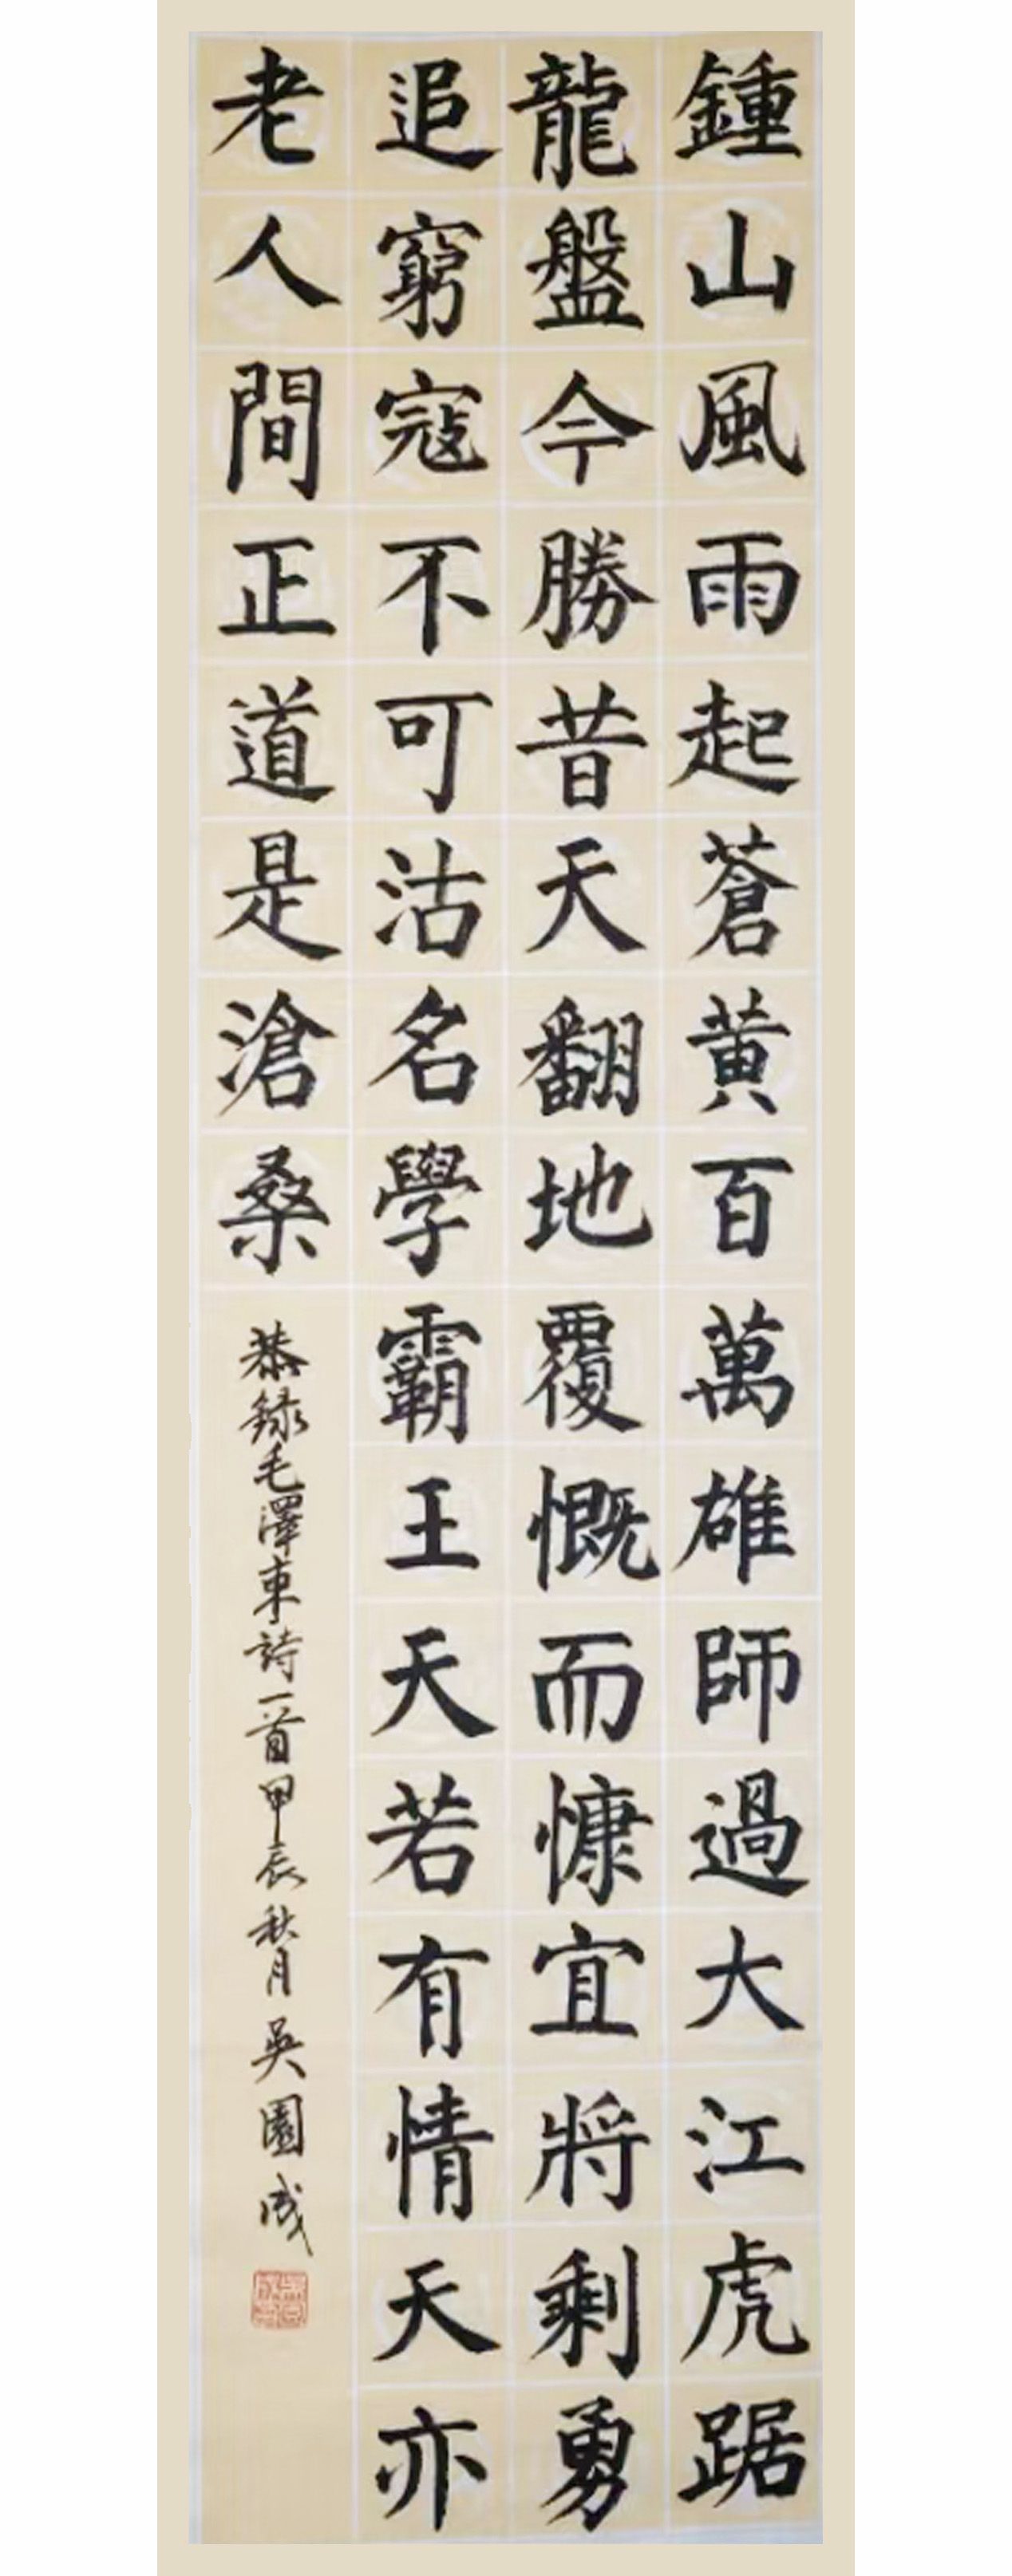 鍾山風雨起蒼黄百萬雄師過大江虎踞
龍盤今勝昔天翻地覆慨而慷宜將剩勇
追窮寇不可沽名學霸王天若有情天亦
老人間正道是滄桑
恭録毛澤東詩一首甲辰秋月吳園成